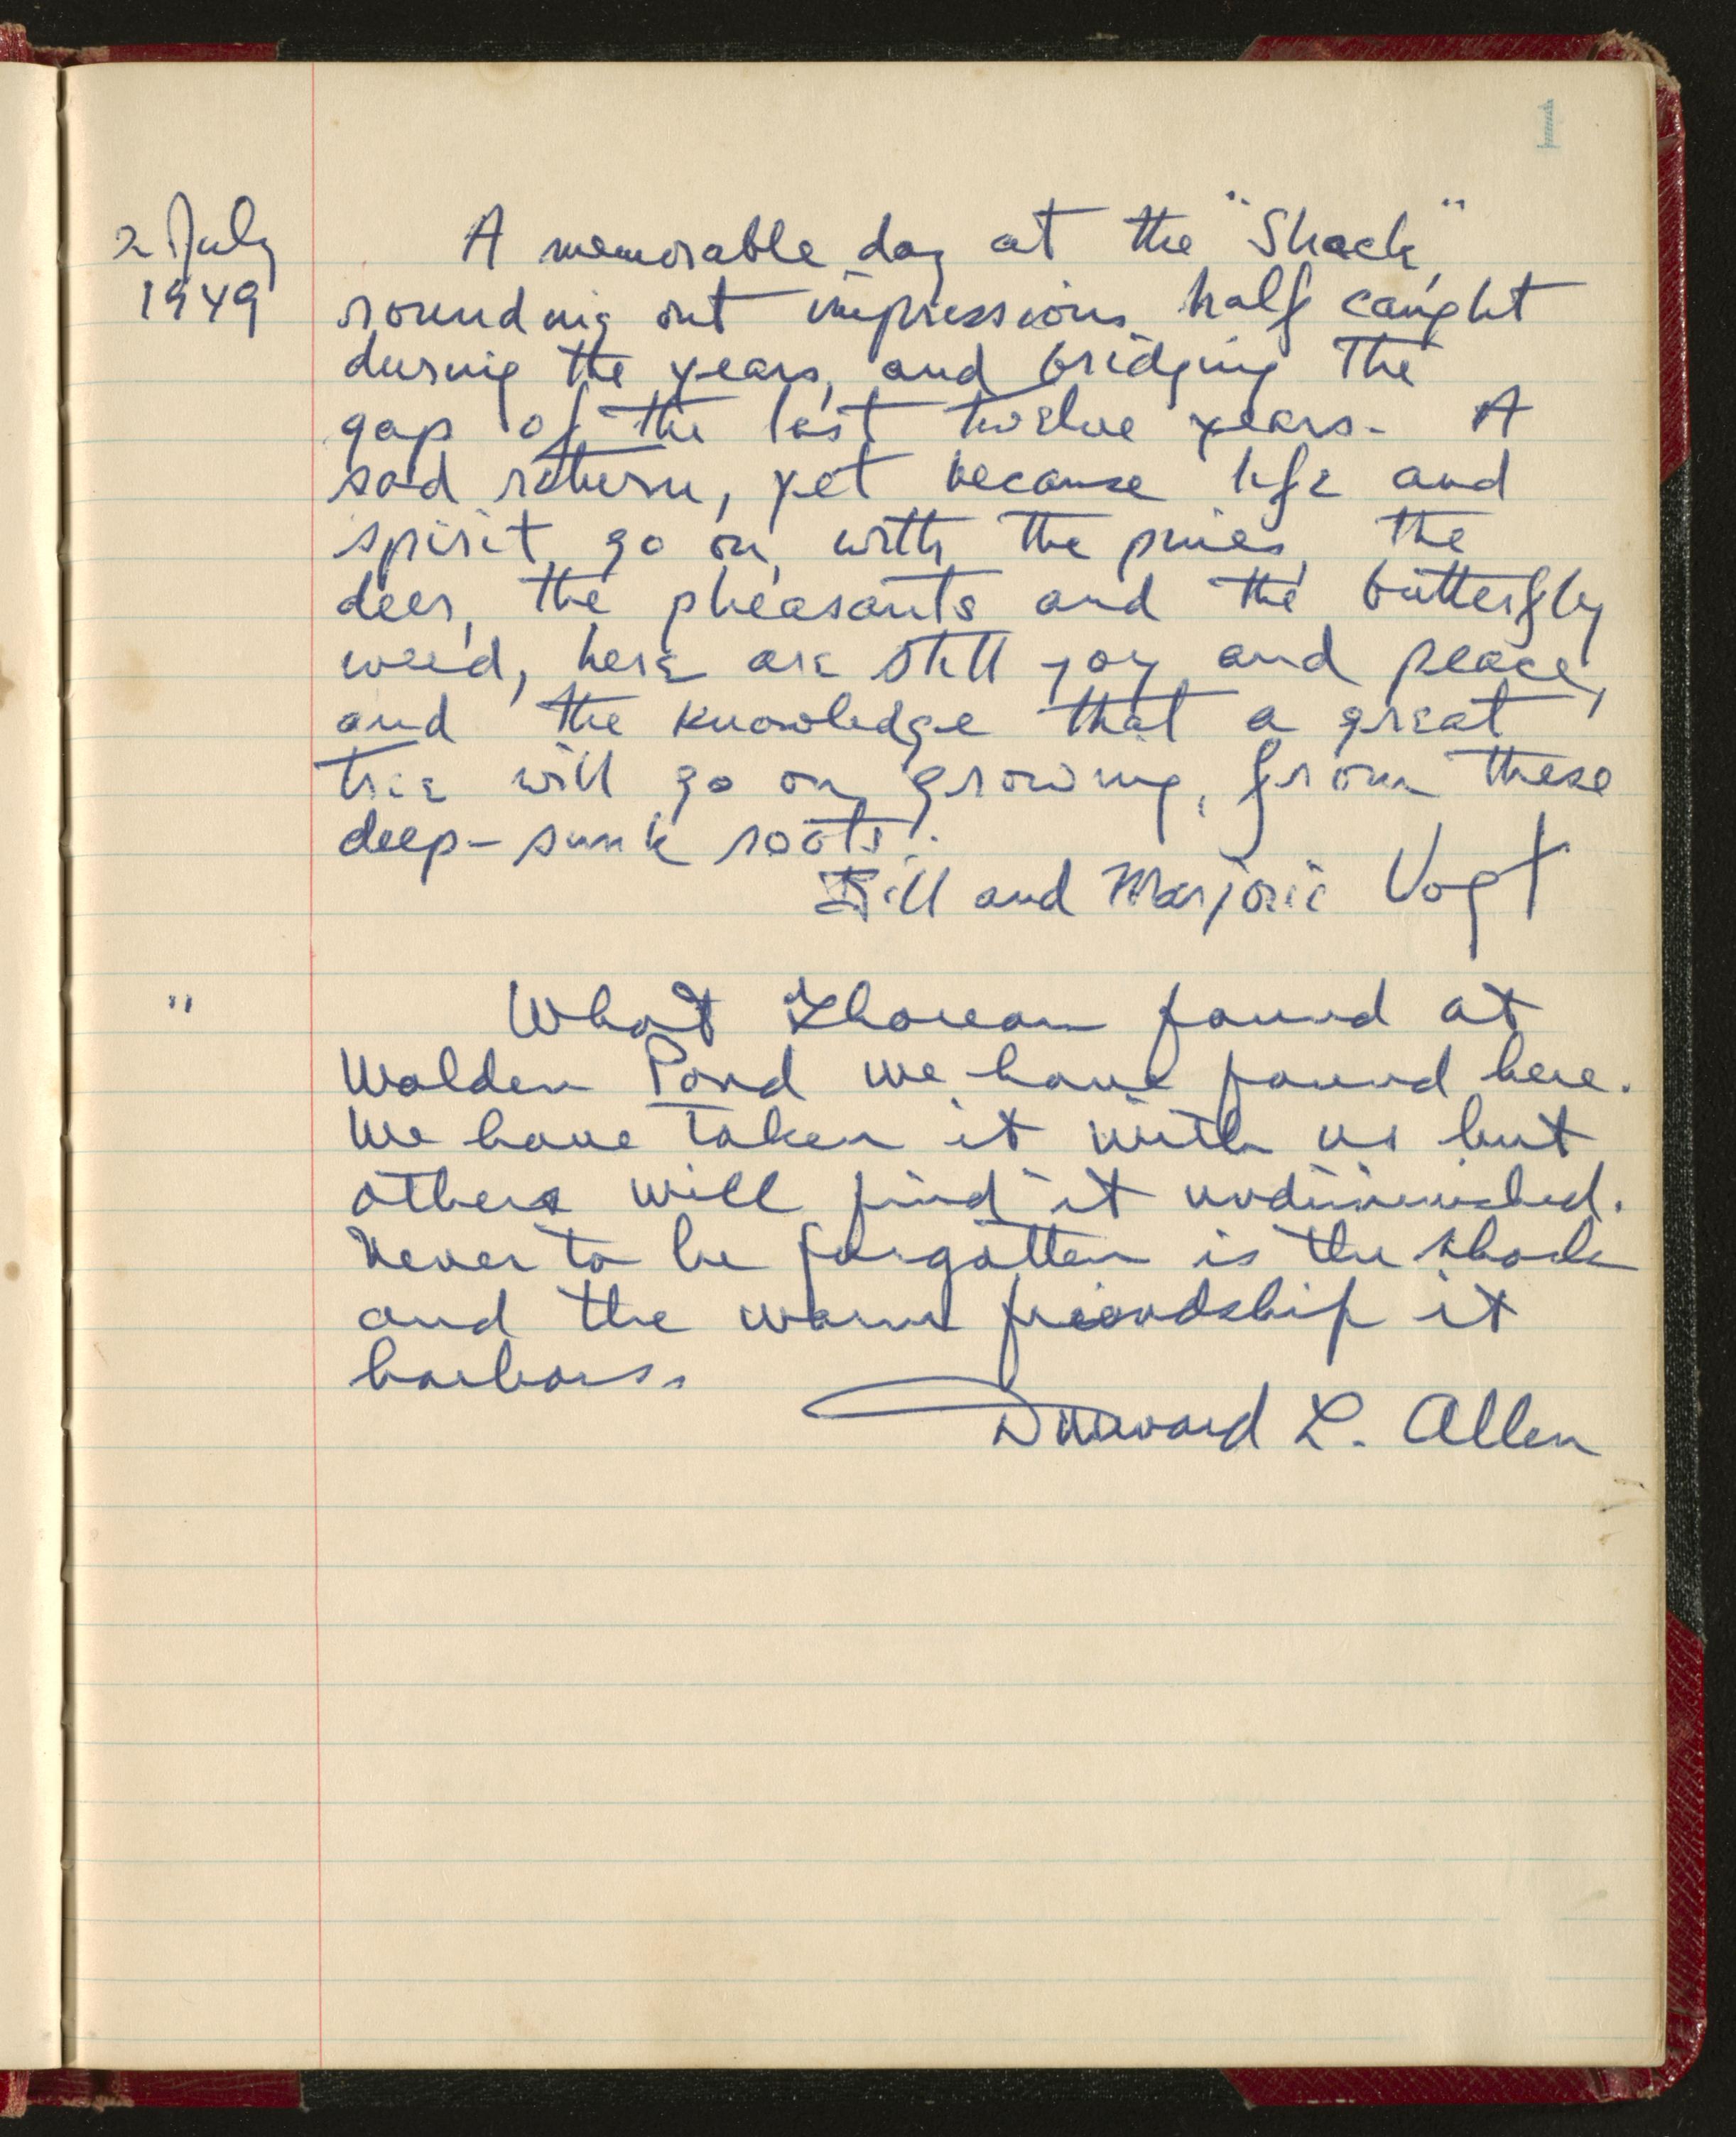 1
2 July
1949
A memorable day at the "Shack",
rounding out impressions half caught
during the years, and bridging the
gap of the last twelve years. A
sad return, yet because life and
spirit go on, with the pines, the
deer, the pheasants and the butterfly
weed, here are still joy and peace,
and the knowledge that a great
tree will go on growing, from these
deep-sunk roots.
Bill and Marjorie Vogt
" What Thoreau found at
Walden Pond we have found here.
We have taken it with us but
others will find it undiminished.
Never to be forgotten is the shack
and the warm friendship it
harbors.
Durward L. Allen